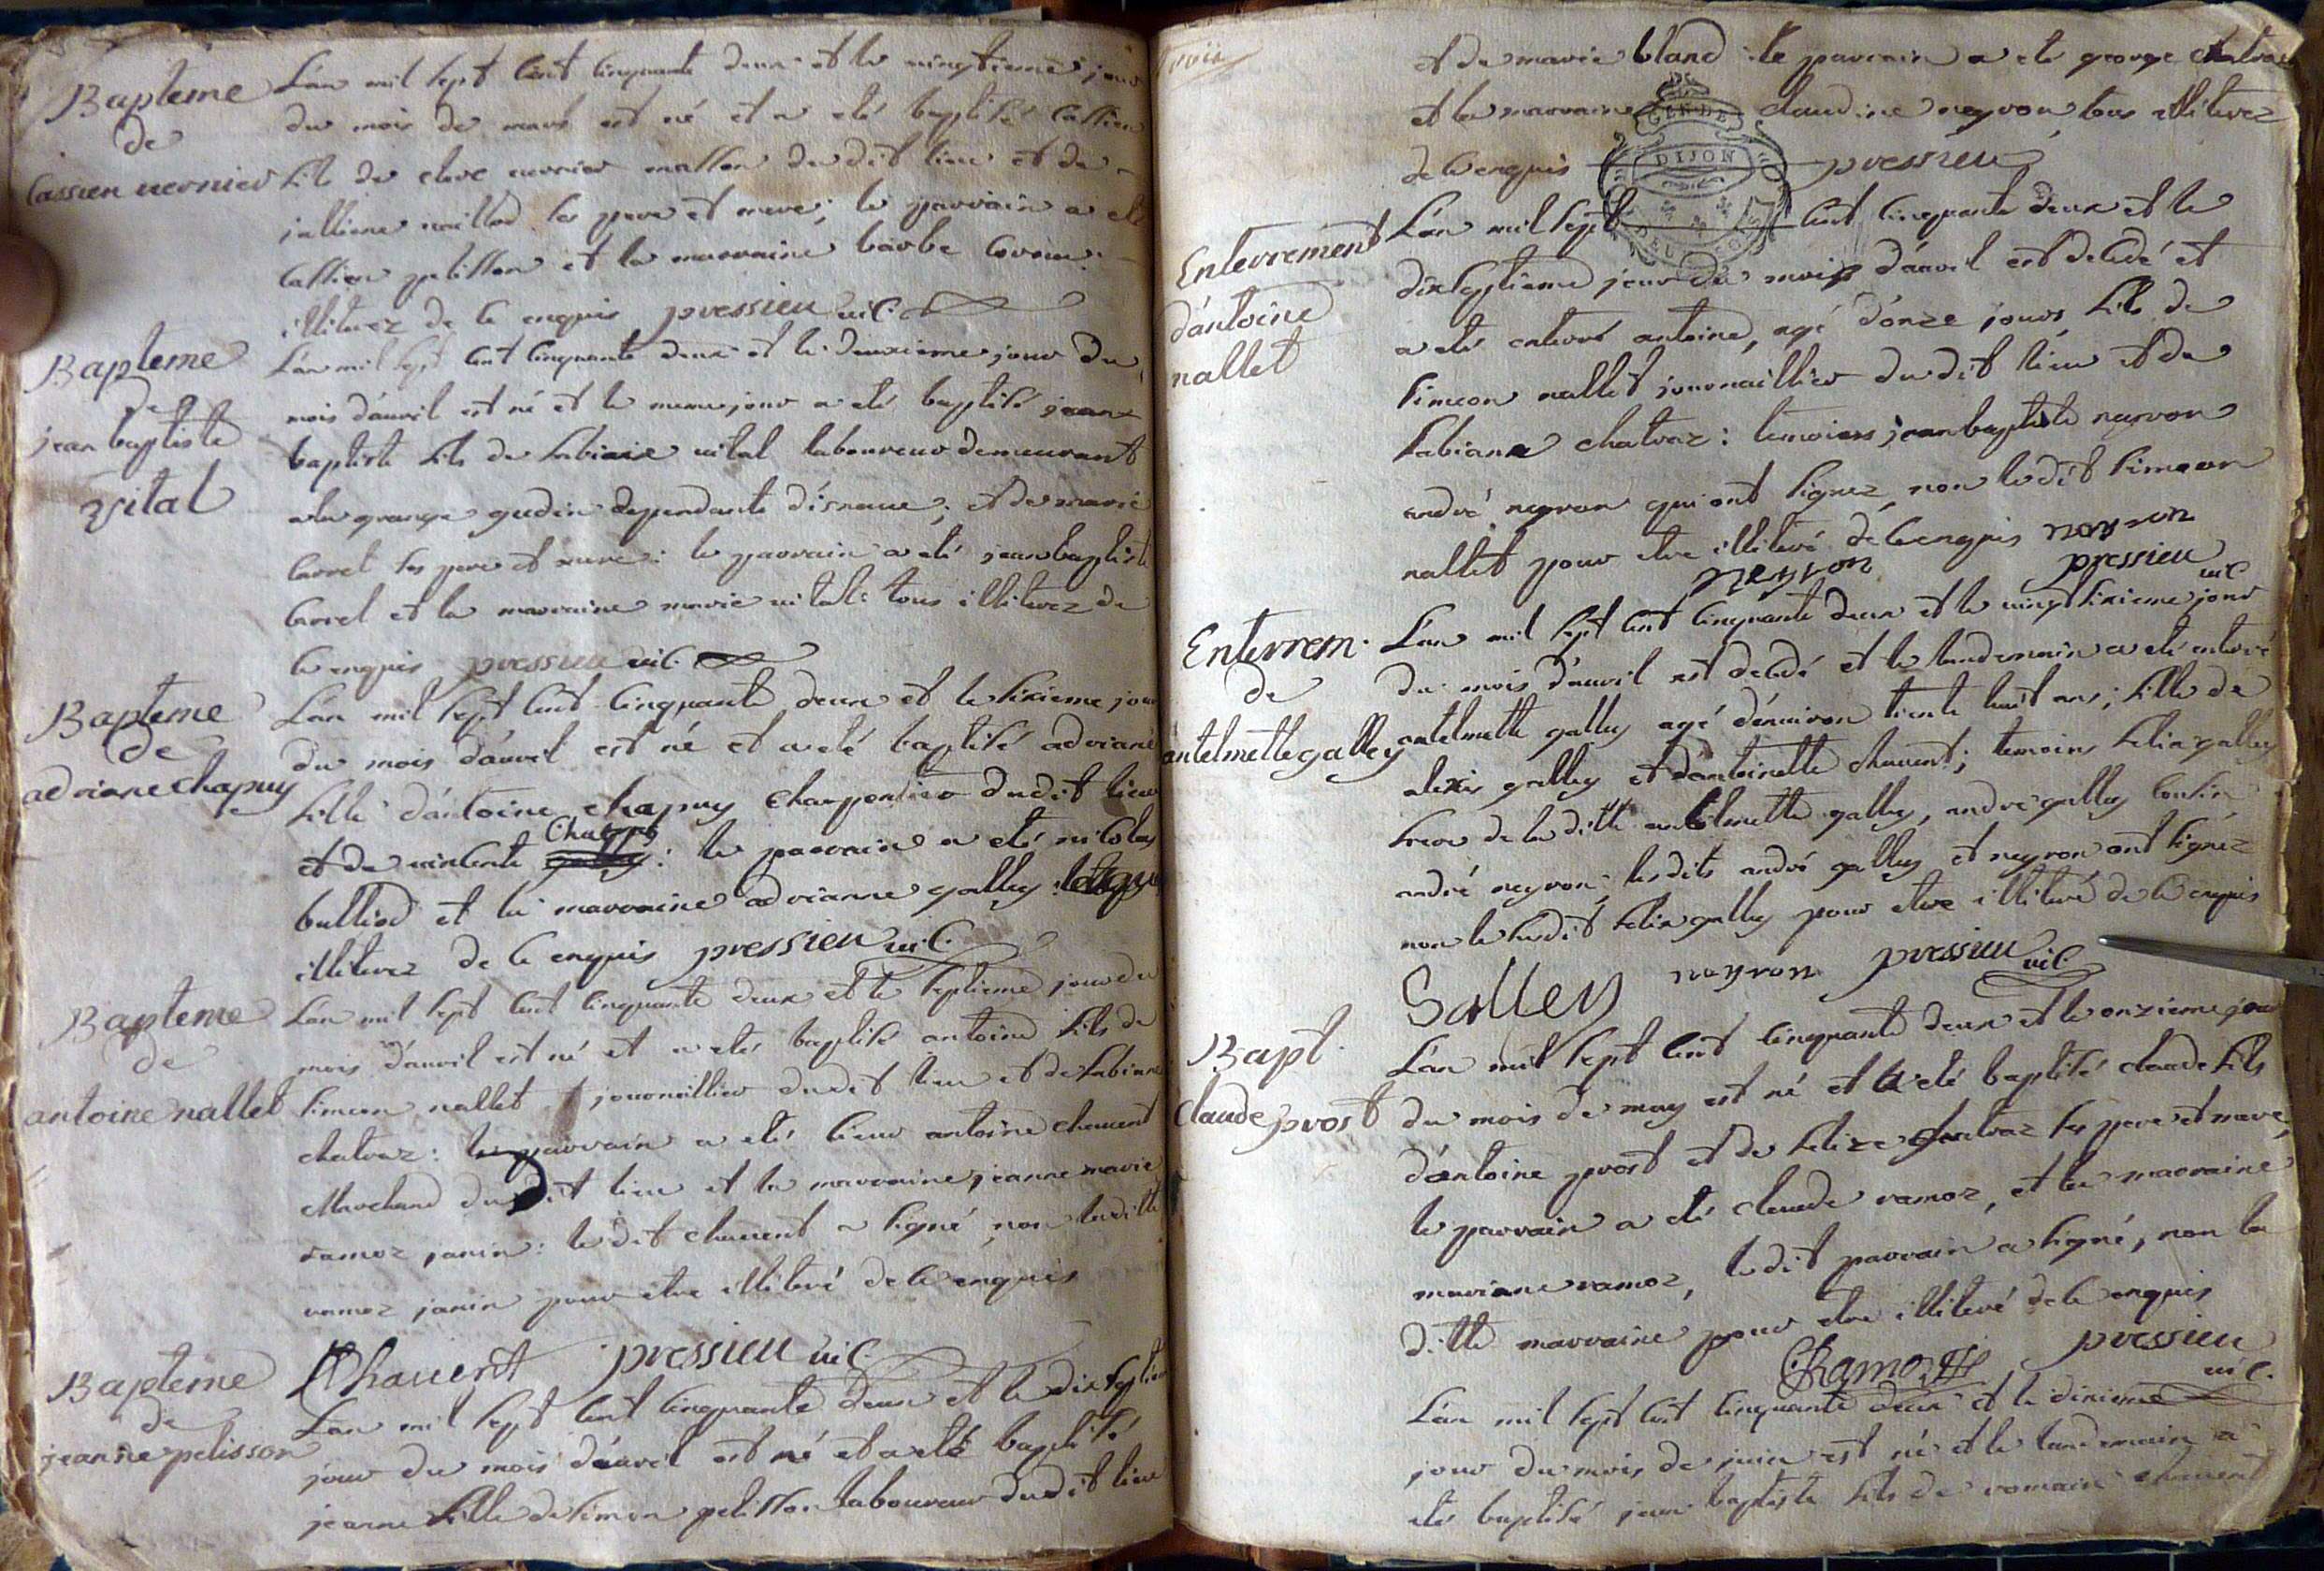 Bapteme
de
Cassien vernier
L'an mil sept cent cinquante deux et le vingtieme jour
du mois de mars est né et a eté baptisé Cassien
fils de claude vernier masson du dit lieu et de
jullienne maillod ses pere et mere; le parrain a eté
Cassien pelisson et la marraine barbe
illiterez de ce enquis pressieu vic.
Bapteme
de
jean baptiste
vital
L'an mil sept cent cinquante deux et le deuxieme jour du
mois d'auvil est né et le meme jour a eté baptisé jean
baptiste fils de fabien vital laboureur demeurant
a la grange gudin dependante d'isnaue; et de marie
Carrel ses pere et mere: le parrain a eté jean baptiste
Carrel et la marraine marie vital: tous illiterez de
ce enquis pressieu vic.
Bapteme
de
adriane chapuy
L'an mil sept cent cinquante deux et le sixieme jour
du mois d'auvil est né et a eté baptisé adriane
fille d'antoine chapuy charpentier dudit lieu
et de vincente : le parrain a eté nicolas
bulliod et la marraine adrianne galley :
illiterez de ce enquis pressieu vic.
Bapteme
de
antoine nallet
L'an mil sept cent cinquante deux et le septieme jour du
mois d'auvil est né et a eté baptisé antoine fils de
simeon nallet journaillier dudit lieu et de fabianne
chatraz: le parrain a eté sieur antoine chauent
Marchand dudit lieu et la marraine jeanne marie
ramoz janin: le dit chauent a signé non laditte
ramoz janin pour etre illiteré de ce enquis
Chauent pressieu vic
Bapteme
de
jeanne pelisson
L'an mil sept cent cinquante deux et le dixseptieme
jour du mois d'auvil est né et a eté baptisé
jeanne fille de simon pelisson laboureur dudit lieu
et de marie bland: le parrain a eté george chatraz
et la marraine claudine neyron tous illiterez
de ce enquis pressieu
GEN DE
DIJON
DEUX SOLS
Enterrement
d'antoine
nallet
L'an mil sept cent cinquante deux et le
dixseptieme jour du mois d'auvil est decedé et
a eté enterré antoine, agé d'onze jours fils de
simeon nallet journaillier du dit lieu et de
fabiane chatraz: temoins jean baptiste neyron
andré neyron qui ont signez non le dit simeon
nallet pour etre illiteré de ce enquis neyron
neyron pressieu
vic
Enterrem.
de
antelmette galley
L'an mil sept cent cinquante deux et le vingt sixieme jour
du mois d'auvil est decedé et le landemain a eté enterré
antelmette galley agé d'enuiron trente huit ans; fille de
alexis galley et d'antoinette chauent; temoins felix galley
frere de la ditte antelmette galley, andre galley cousin,
andré neyron; lesdits andré galley et neyron ont signez
non le susdit felix galley pour etre illiteré de ce enquis
Galley neyron pressieu vic
Bapt.
Claude prost
L'an mil sept cent cinquante deux et le onzieme jour
du mois de may est né et a eté baptisé claude fils
d'antoine prost et de felize chatraz ses pere et mere;
le parrain a eté claude ramoz, et la marraine
mariane ramoz, le dit parrain a signé, non la
ditte marraine pour etre illiteré de ce enquis
C Ramoz pressieu
vic.
L'an mil sept cent cinquante deux et le dixieme
jour du mois de juin est né et le landemain a
eté baptisé jean baptiste fils de romain chauent